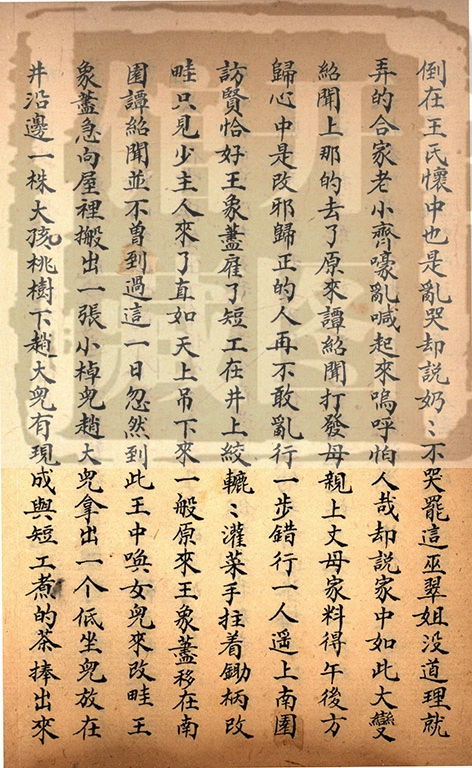 倒在王氏懷中也是亂哭却説奶〻不哭罷這巫翠姐没道理就
弄的合家老小齊嚎亂喊起來嗚呼怕人哉却説家中如此大變
紹聞上那的去了原來譚紹聞打發母親上丈母家料得午後方
歸心中是改邪歸正的人再不敢亂行一步錯行一人遥上南園
訪賢恰好王象藎雇了短工在井上絞轆〻灌菜手拄着鋤柄改
畦只見少主人來了直如天上吊下來一般原來王象藎移在南
園譚紹聞並不曾到過這一日忽然到此王中喚女兒來改畦王
象藎急向屋裡搬出一張小棹兒趙大兒拿出一个低坐兒放在
井沿邊一株大孩桃樹下趙大兒有現成與短工煮的茶捧出來